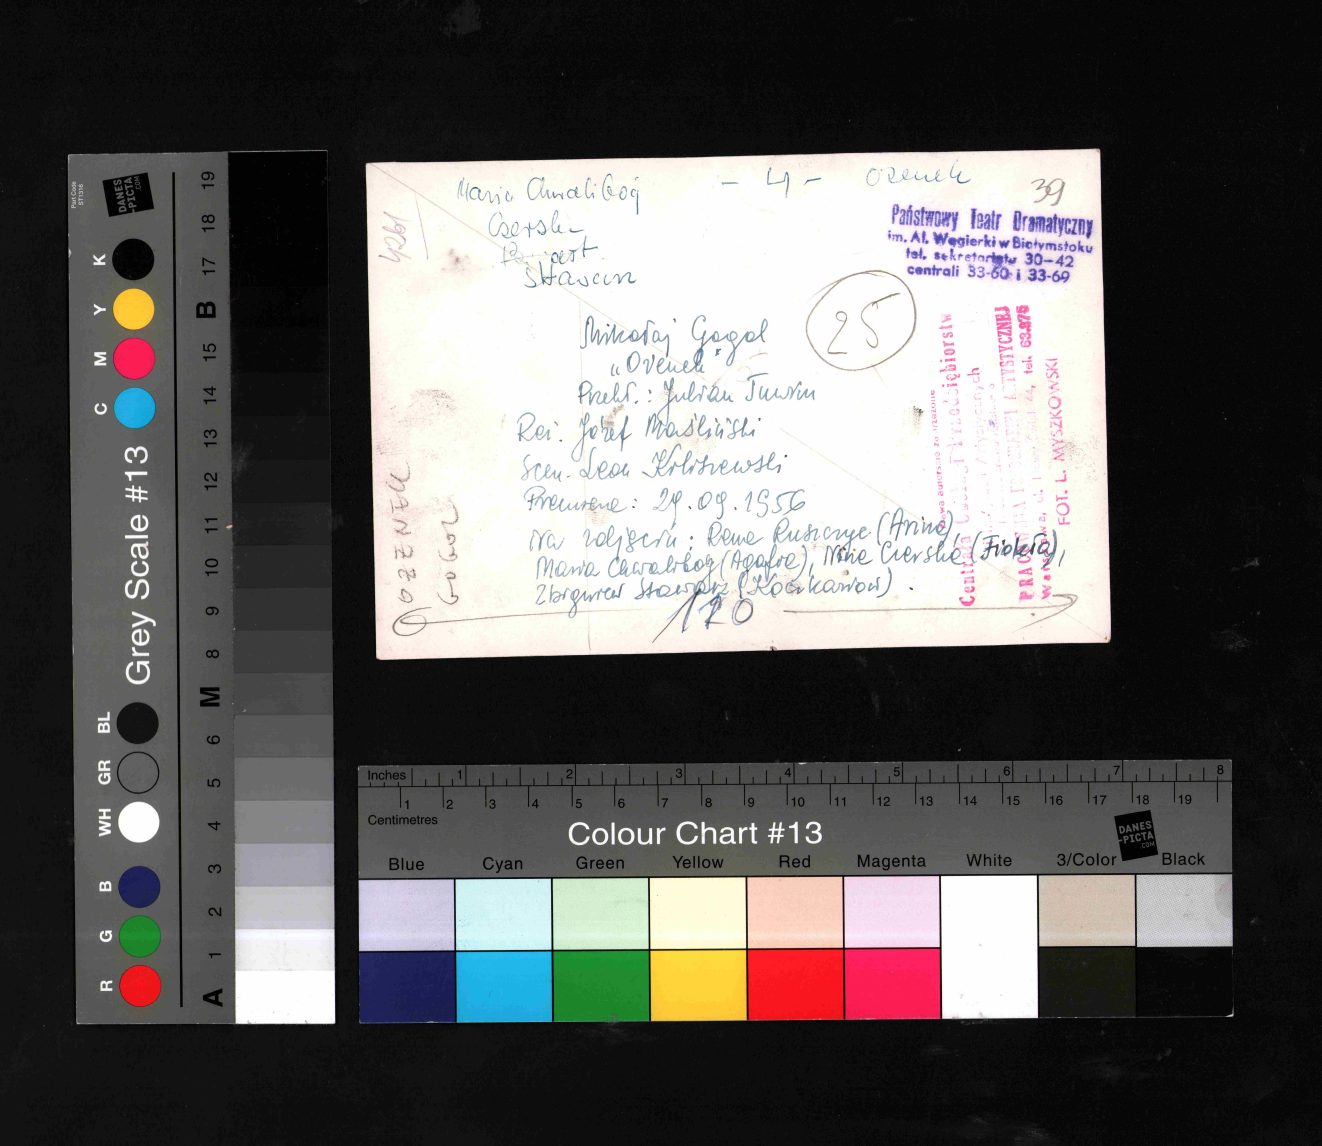 Maria Chwalibóg
- 4 -
Ożenek
39
Czerska
Stawarz
Państwowy Teatr Dramatyczny
im. Al. Węgierki w Białymstoku
tel. sekretariatu 30-42
centrali 33-60 i 33-69
25
Mikołaj Gogol
„Ożenek"
Przekł.: Julian Tuwim
Reż. Józef Maśliński
Scen. Leon
Premiera: 29.09.1956
Na zdjęciu: Rena Ruszczyc (Arina),
Maria Chwalibóg (Agafia), Nina Czerska (Fiokła),
Zbigniew Stawarz (Koczkariow).
120
OŻENEK
GOGOL
Centrala
Przedsiębiorstw
PRACOWNIA
ARTYSTYCZNEJ
Warszawa, ul.
tel. 63.875
FOT. L. MYSZKOWSKI
Part Code
ST1316
DANES
-PICTA
.COM
K
Y
M
C
Grey Scale #13
BL
GR
WH
B
G
R
19
18
17
B
15
14
13
12
11
10
9
8
M
6
5
4
3
2
1
A
Inches
1 2 3 4 5 6 7 8
1 2 3 4 5 6 7 8 9 10 11 12 13 14 15 16 17 18 19
Centimetres
Colour Chart #13
DANES
-PICTA
.COM
Blue Cyan Green Yellow Red Magenta White 3/Color Black